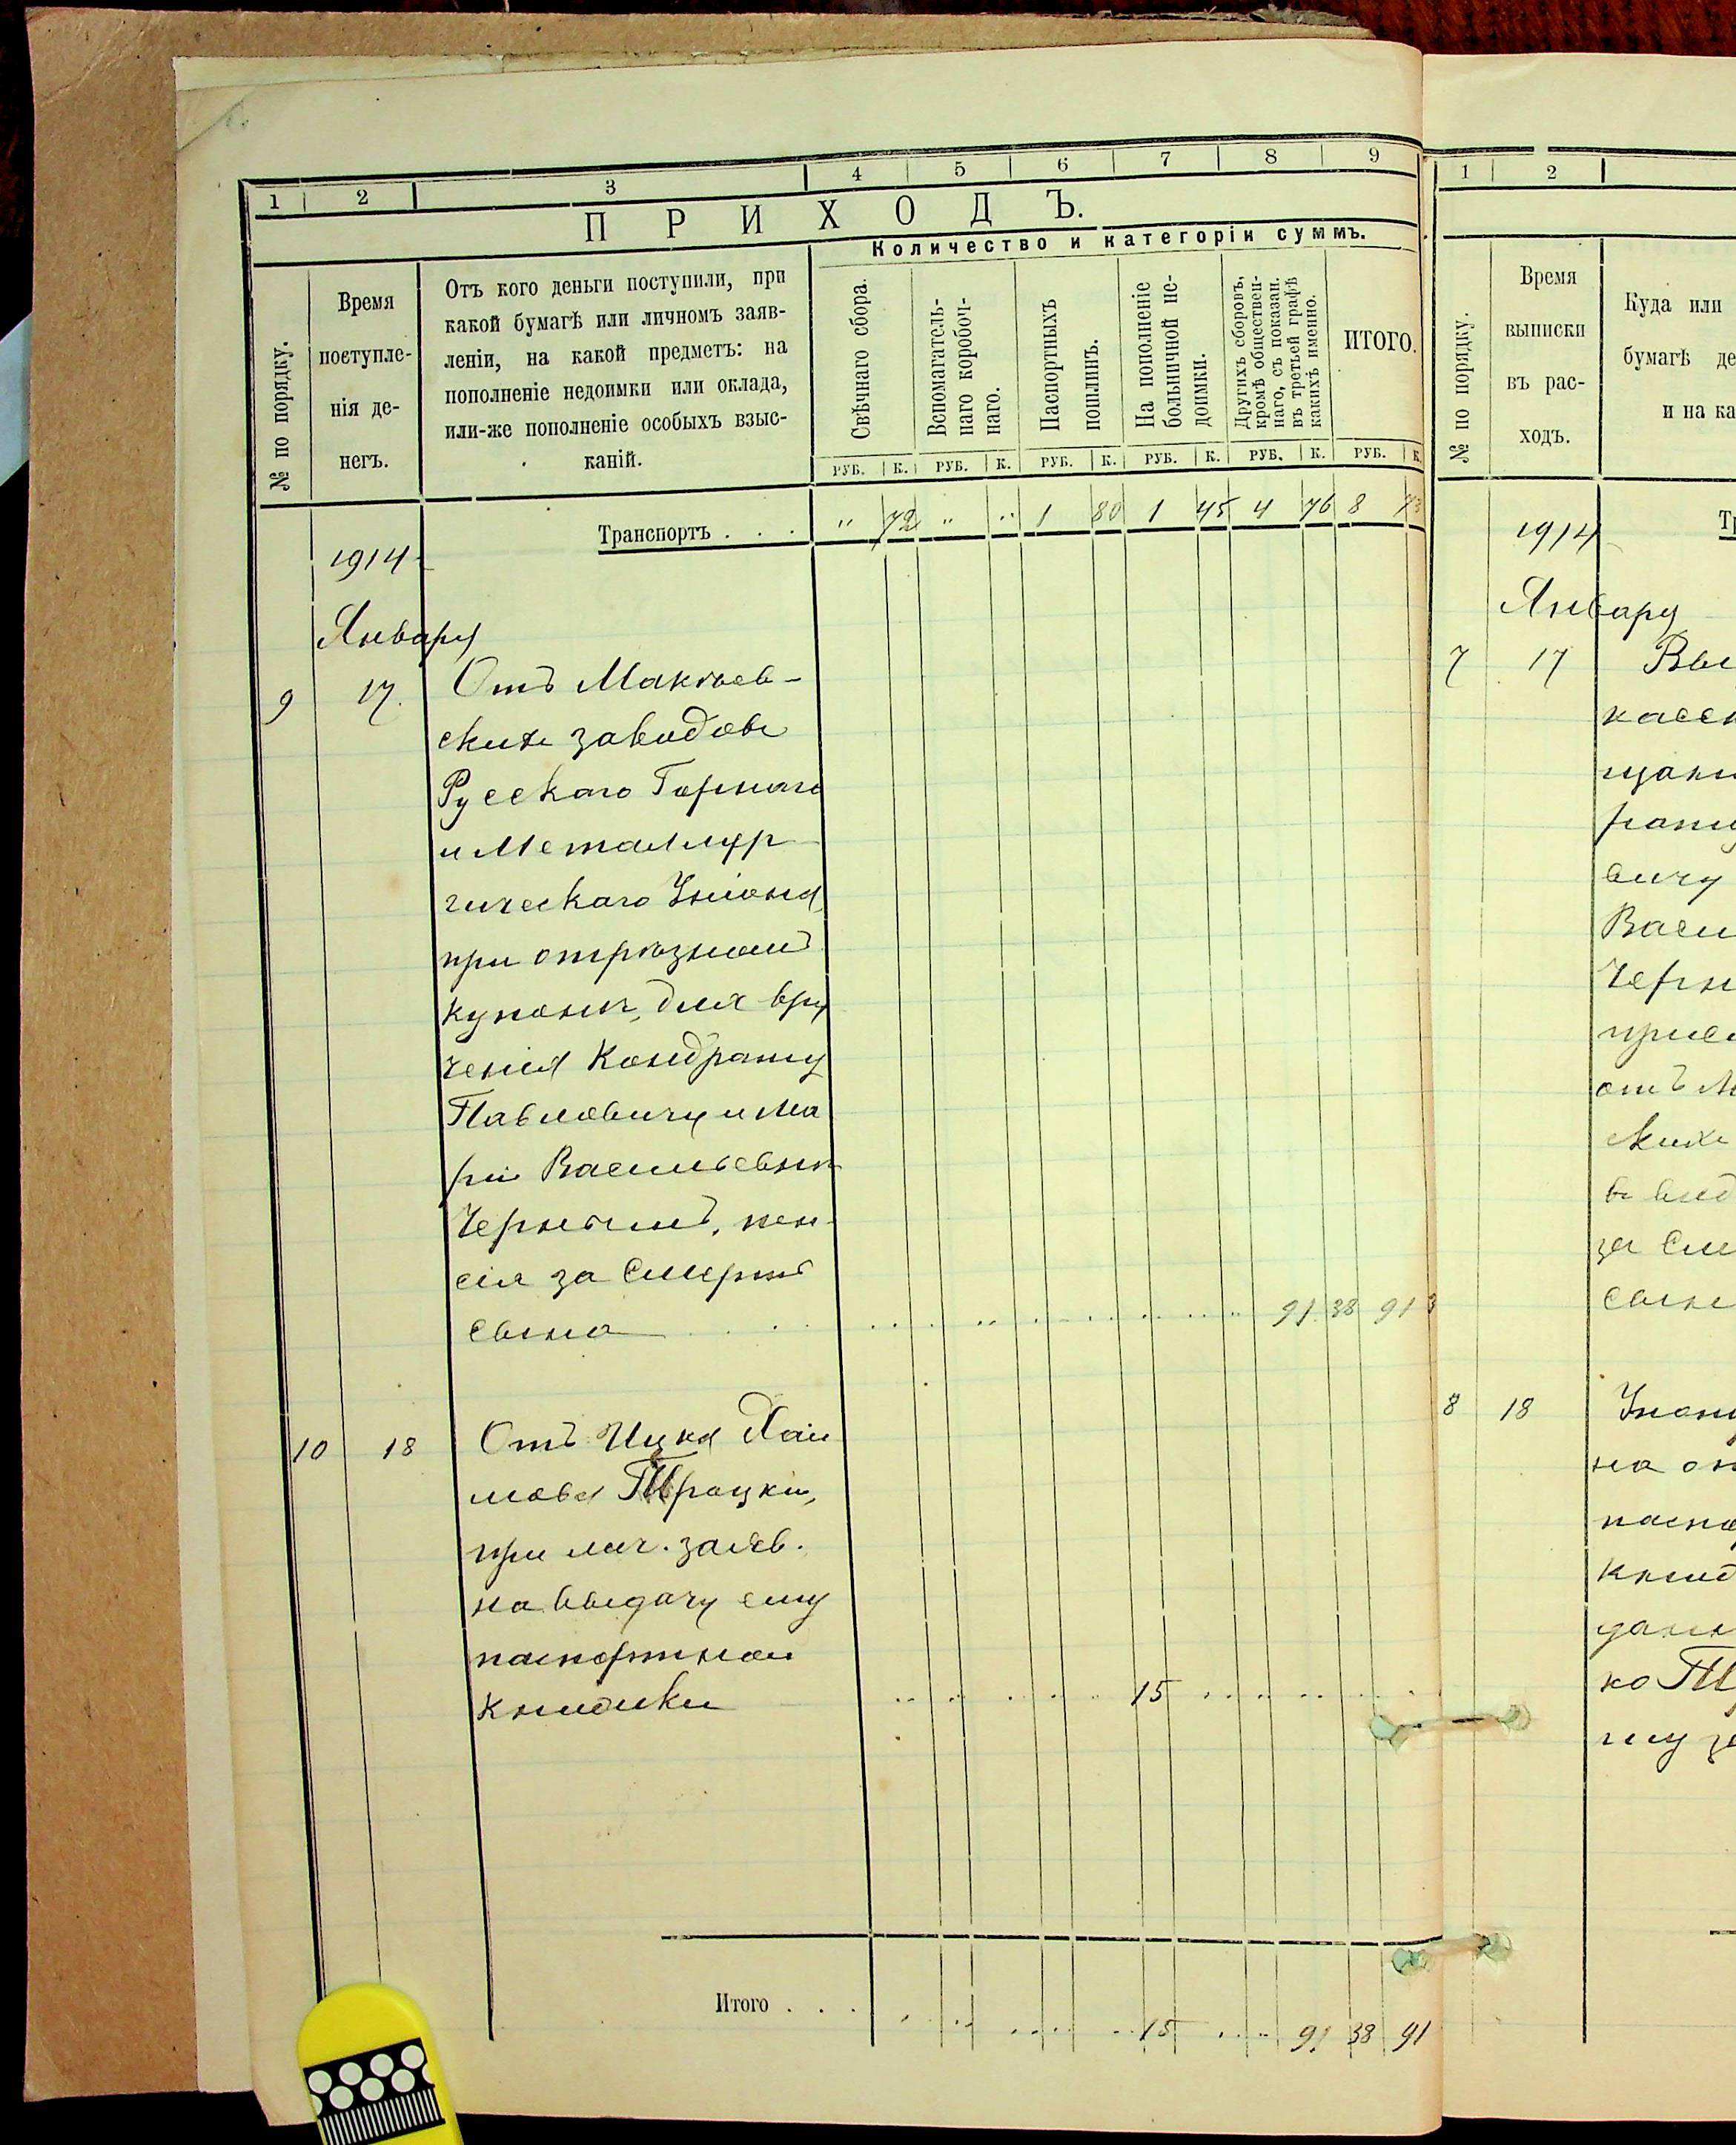 1 2 3 4 5 6 7 8 9
ПРИХОДЪ.
Количество и категоріи суммъ.
№ по порядку.
Время
поступле-
нія де-
негъ.
Отъ кого деньги поступили, при
какой бумагѣ или личномъ заяв-
леніи, на какой предметъ: на
пополненіе недоимки или оклада,
или-же пополненіе особыхъ взыс-
каній.
Свѣчнаго сбора.
Вспомагатель-
наго коробоч-
наго.
Паспортныхъ
пошлинъ.
На пополненіе
больничной не-
доимки.
Другихъ сборовъ,
кромѣ обществен-
наго, съ показан.
въ третьей графѣ
какихъ именно.
ИТОГО.
РУБ. К. РУБ. К. РУБ. К. РУБ. К. РУБ. К. РУБ. К.
Транспортъ . . . " 72 " " 1 80 1 45 4 76 8 73
1914
Января
9 17. Отъ Макѣев-
скихъ заводовъ
Русскаго Горнаго
и Металлур
гическаго Уніона,
при отрѣзномъ
купонѣ, для вру
ченія Кондрату
Павловичу и Ма
ріи Васильевнѣ
Чернымъ, пен-
сія за смерть
сына 91 38 91 3
10 18 Отъ Ицка Хаи
мова Троцкій,
при лич. заяв.
на выдачу ему
паспортной
книжки 15
Итого . . . 15 91 38 91
1 2
№ по порядку.
Время
выписки
въ рас-
ходъ.
Куда или
бумагѣ де
и на ка
Тр
1914
Января
7 17 Вы
касс
щан
рату
вичу
Васи
Черн
прис
отъ М
скихъ
въ вид
за см
сын
8 18
на от
паспо
книж
данн
ко Тр
му за